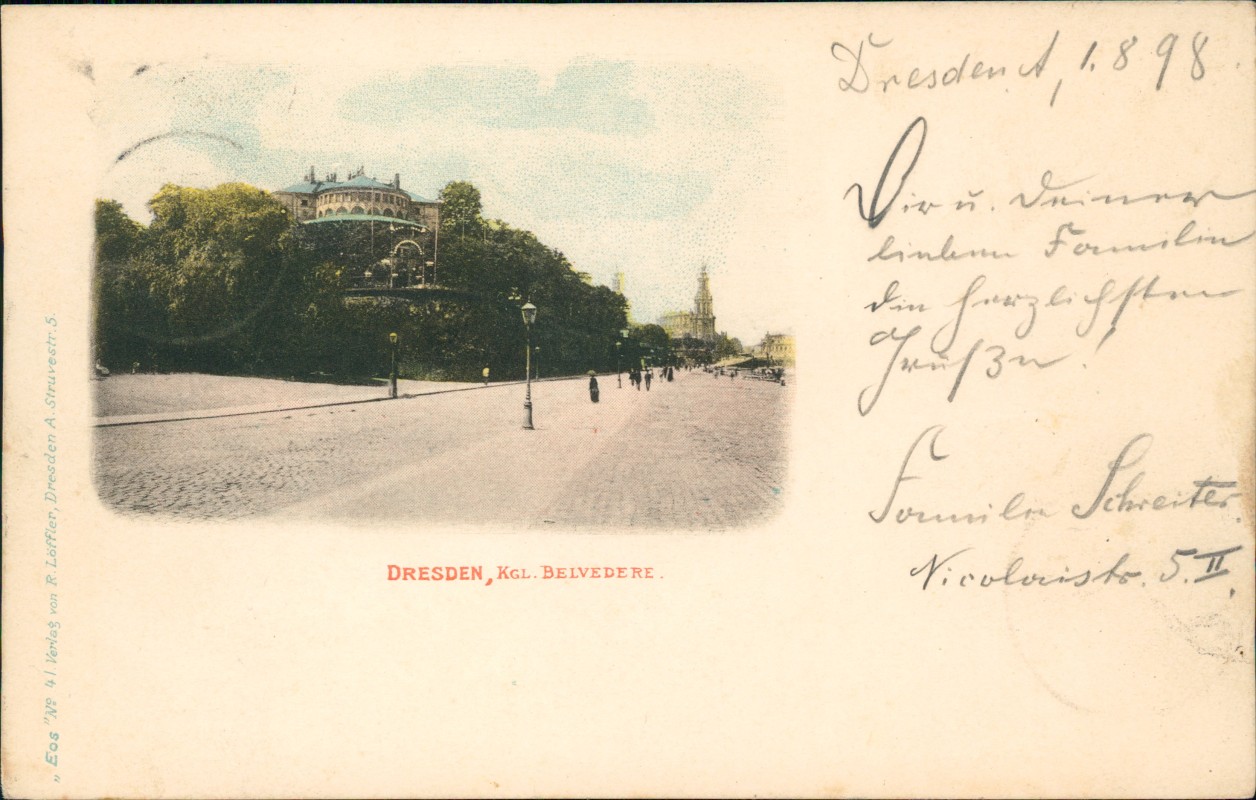 Dresden A, 1. 8 98.
Dir u. Deiner
lieben Familie
die herzlichsten
Grüße!
Familie Schreiter.
Nicolaistr. 5. II.
DRESDEN, KGL. BELVEDERE.
„Eos" No 41 Verlag von R. Löffler, Dresden A. Struvestr. 5.